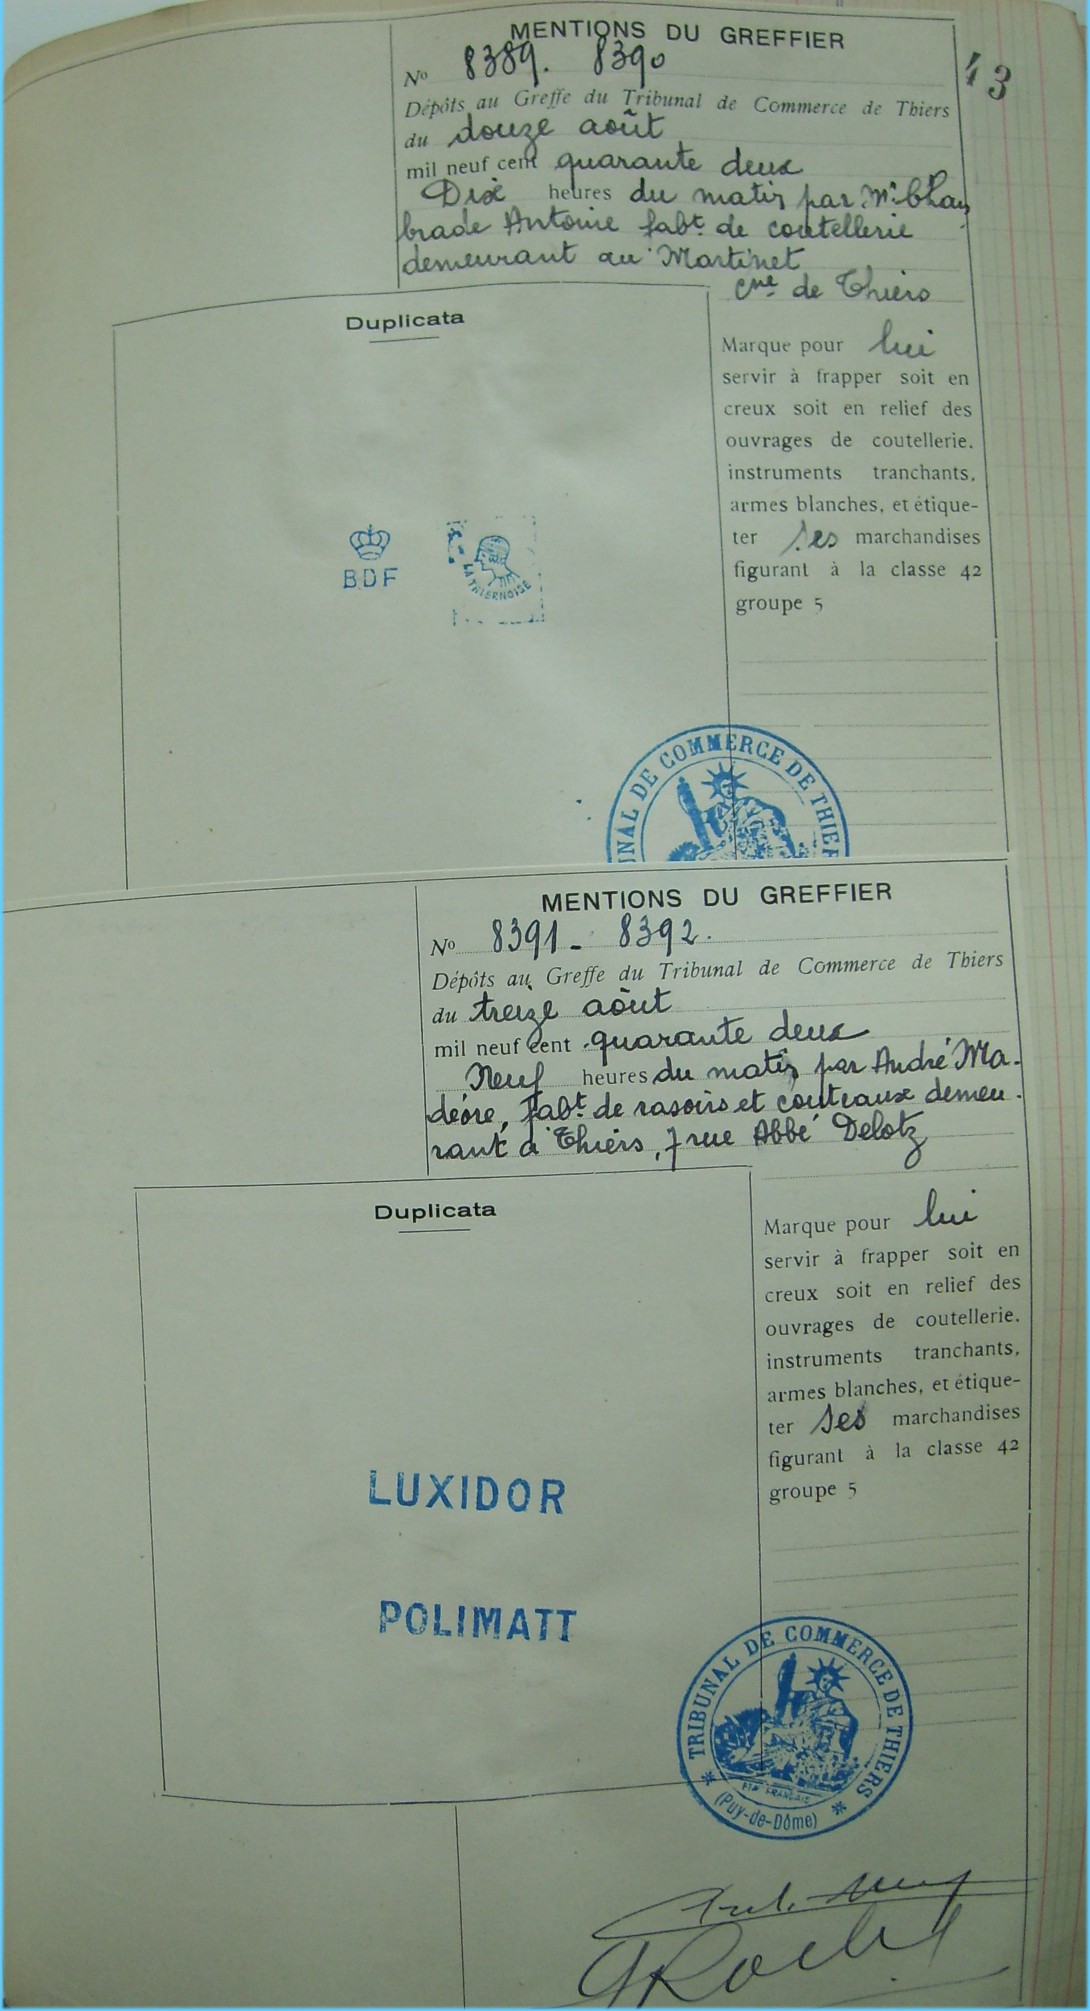 MENTIONS DU GREFFIER
43
No 8389. 8390
Dépôts au Greffe du Tribunal de Commerce de Thiers
du douze août
mil neuf cent quarante deux
Dix heures du matin par Mr Cham
brade Antoine fabt de coutellerie
demeurant au Martinet
cne de Thiers
Duplicata
Marque pour lui
servir à frapper soit en
creux soit en relief des
ouvrages de coutellerie.
instruments tranchants,
armes blanches, et étique-
ter ses marchandises
figurant à la classe 42
groupe 5
BDF
LA THIERNOISE
UNAL DE COMMERCE DE THIER
MENTIONS DU GREFFIER
No 8391 - 8392.
Dépôts au Greffe du Tribunal de Commerce de Thiers
du treize août
mil neuf cent quarante deux
Neuf heures du matin par André Ma-
deore, fabt de rasoirs et couteaux demeu-
rant à Thiers, 7 rue Abbé Delotz
Duplicata
Marque pour lui
servir à frapper soit en
creux soit en relief des
ouvrages de coutellerie.
instruments tranchants,
armes blanches, et étique-
ter ses marchandises
figurant à la classe 42
groupe 5
LUXIDOR
POLIMATT
TRIBUNAL DE COMMERCE DE THIERS
(Puy-de-Dôme)